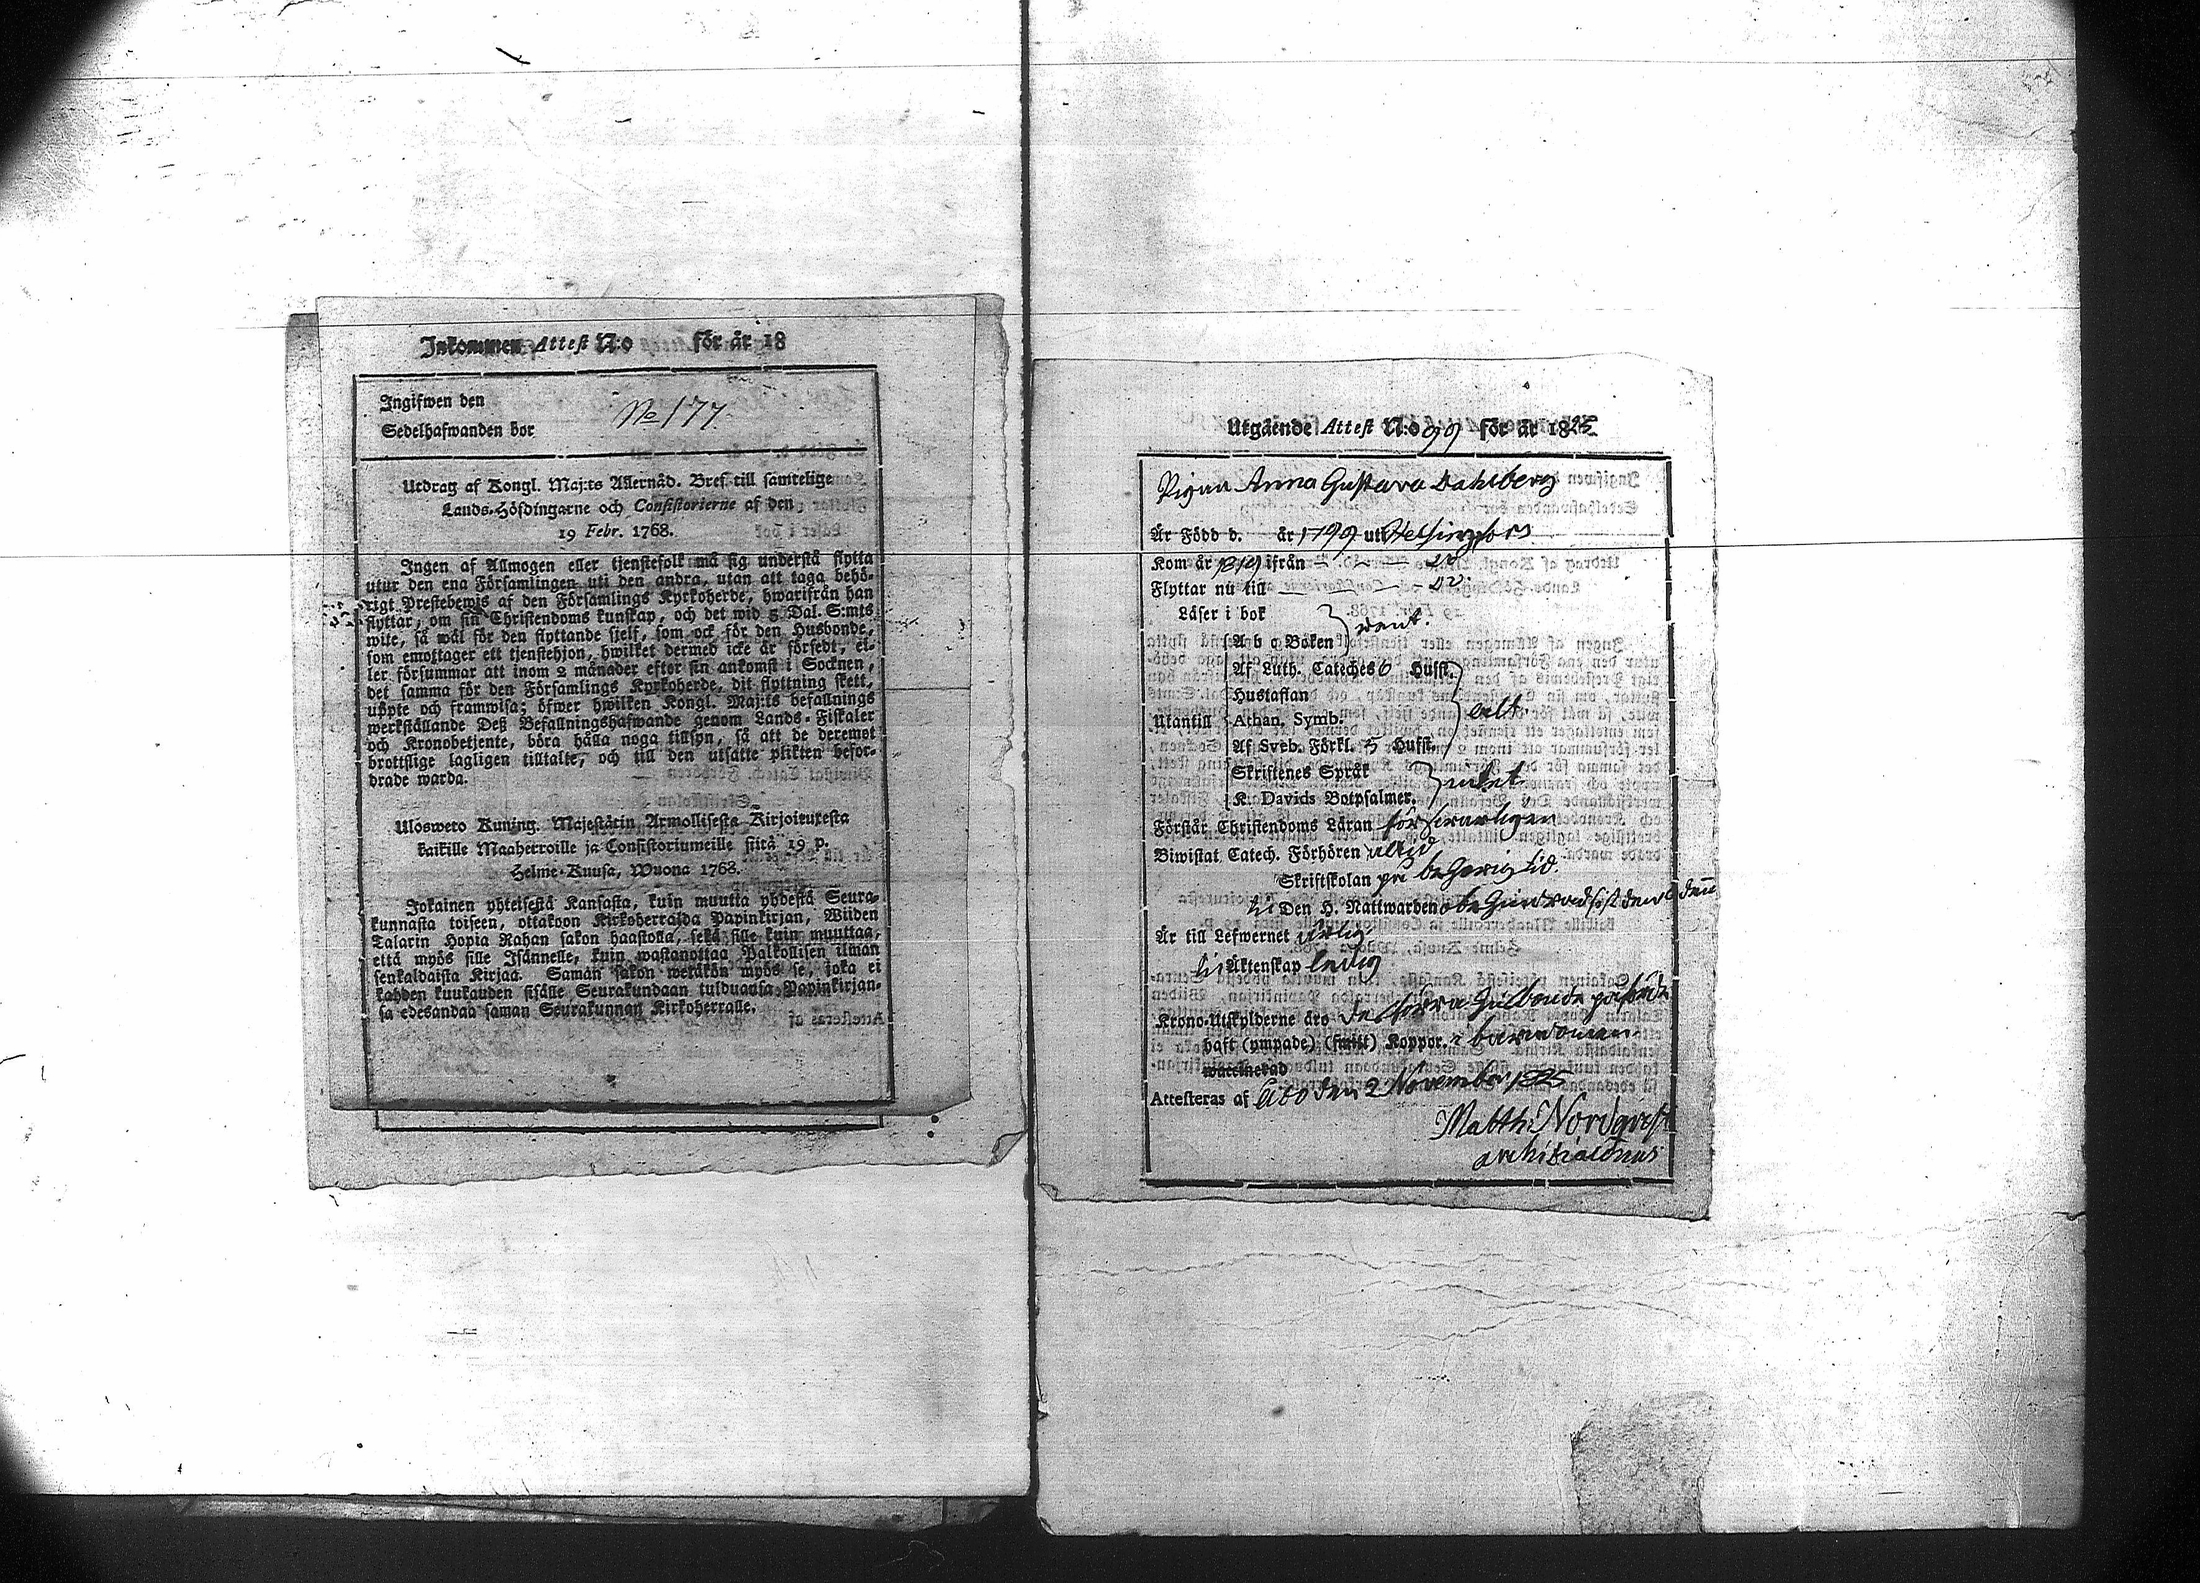 Inkommen Attest N:o för år 18
Ingifwen den
Sedelhafwanden bor
No 177.
Utdrag af Kongl. Maj:ts Allernåd. Bref till samtelige
Lands-Höfdingarne och Consistorierne af den
19 Febr. 1768.
Ingen af Allmogen eller tjenstefolk må sig understå flytta
utur den ena Församlingen uti den andra, utan att taga behö-
rigt Prestebewis af den Församlings Kyrkoherde, hwarifrån han
flyttar, om sin Christendoms kunskap, och det wid 5 Dal. S:mts
wite, så wäl för den flyttande sjelf, som ock för den Husbonde,
som emottager ett tjenstehjon, hwilket dermed icke är försedt, el-
ler försummar att inom 2 månader efter sin ankomst i Socknen,
det samma för den Församlings Kyrkoherde, dit flyttning skett,
uppte och framwisa; öfwer hwilken Kongl. Maj:ts befallnings
werkställande Deß Befallningshafwande genom Lands-Fiskaler
och Kronobetjente, böra hålla noga tillsyn, så att de deremot
brottslige lagligen tilltalte, och till den utsatte plikten befor-
drade warda.
Ulosweto Kuning. Majestätin Armollisesta Kirjoituxesta
kaikille Maaherroille ja Consistoriumeille siitä 19 p.
Helme-Kuusa, Wuona 1768.
Jokainen yhteisestä Kansasta, kuin muutta yhdestä Seura-
kunnasta toiseen, ottakoon Kirkoherralda Papinkirjan, Wiiden
Talarin Hopia Rahan sakon haastolla, sekä sille kuin muuttaa,
että myös sille Isännelle, kuin wastanottaa Palkollisen ilman
senkaldaista Kirjaa. Saman sakon wetäkön myös se, joka ei
kahden kuukauden sisälle Seurakundaan tulduansa Papinkirjan-
sa edesandaa saman Seurakunnan Kirkoherralle.
Utgående Attest N:o 99 för år 1825
Pigan Anna Gustava Dahlberg
Är Född d. år 1799 uti Helsingfors
Kom år 1819 ifrån
Flyttar nu till
Läser i bok
A b c Boken
Af Luth. Cateches 6 Hufst.
Hustaflan
Utantill Athan. Symb. allt
Af Sveb. Förkl. 5 Hufst.
Skriftenes Språk
K. Davids Botpsalmer.
Förstår Christendoms Läran försvarligen
Biwistat Catech. Förhören
Skriftskolan på behörig tid.
Den H. Nattwarden
Är till Lefwernet ärlig
till Äktenskap ledig
Krono-Utskylderne äro
haft (ympade) (smitt) Koppor. i barndomen.
waccinerad
Attesteras af Åbo den 2 November 1825
Matth: Nordqvist
archidiaconus